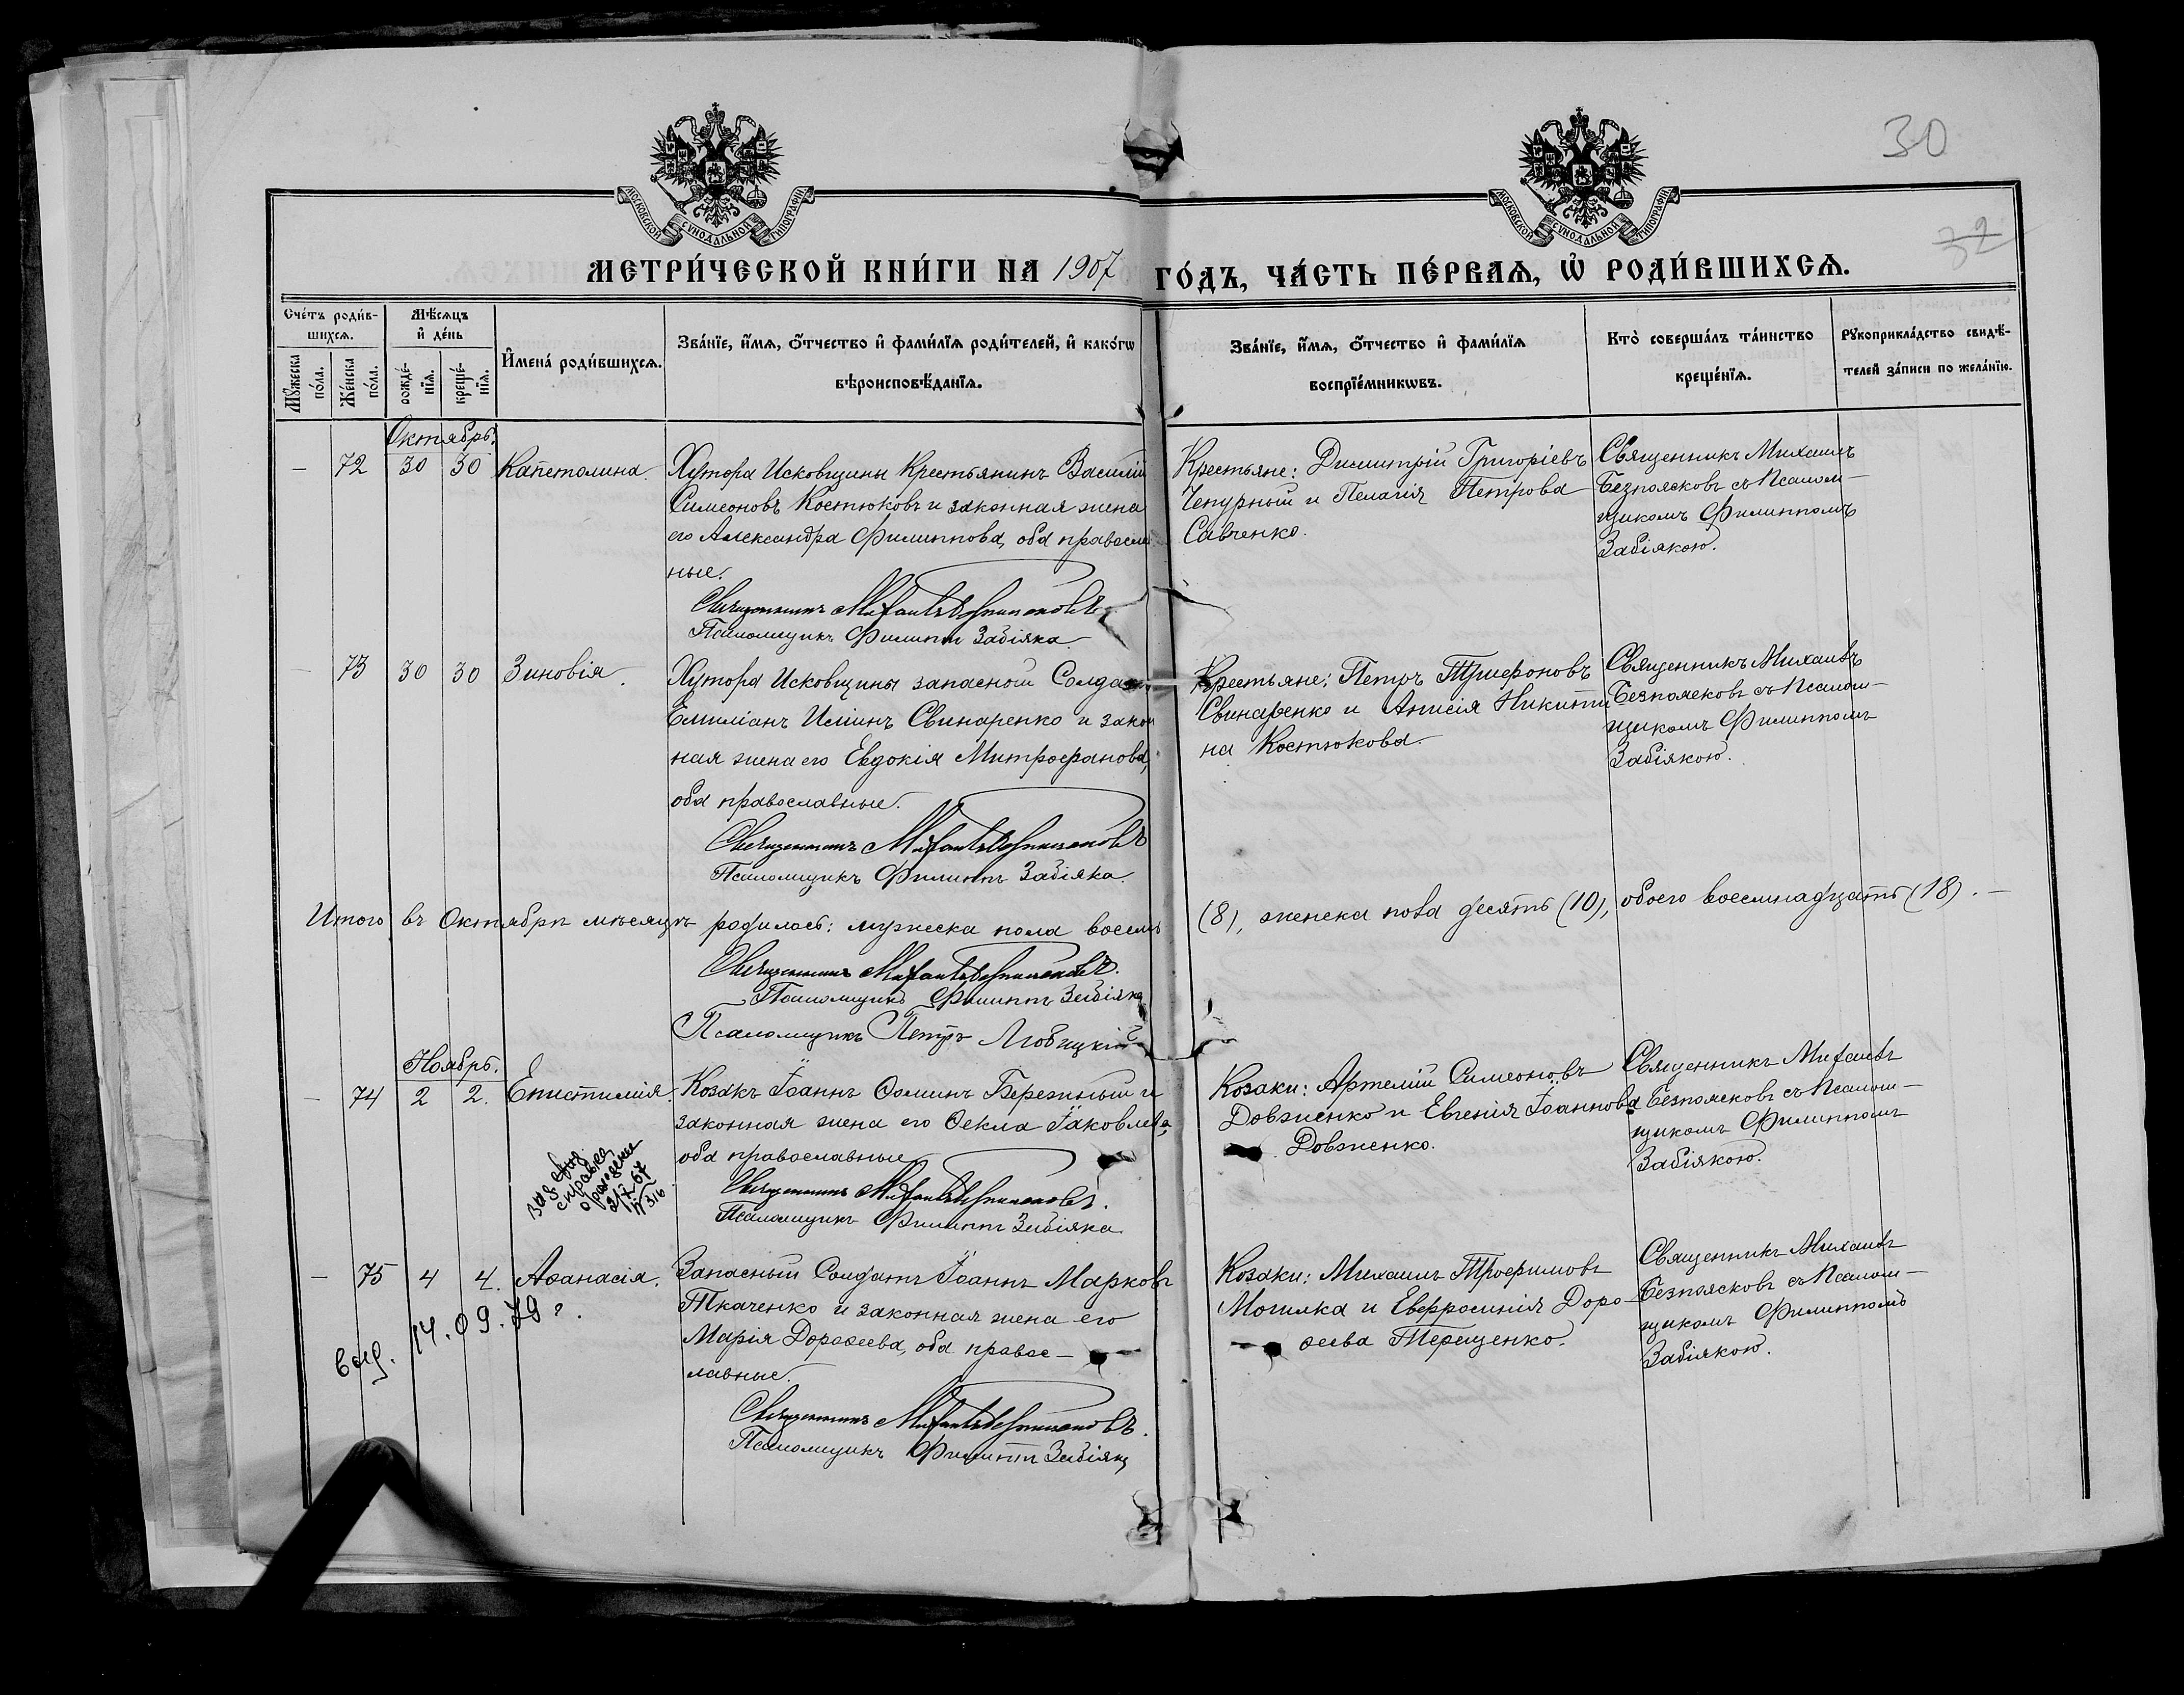 30
32
МОСКОВСКОЙ СѴНОДАЛЬНОЙ ТИПОГРАФІИ
МОСКОВСКОЙ СѴНОДАЛЬНОЙ ТИПОГРАФІИ
МЕТРИ́ЧЕСКОЙ КНИ́ГИ НА 1907 ГО́ДЪ, ЧА́СТЬ ПЕ́РВАѦ, Ѽ РОДИ́ВШИХСѦ.
Сче́тъ роди́в-
шихсѧ.
Мꙋ́жеска по́ла.
Же́нска по́ла.
Мѣ́сѧцъ
и҆ де́нь
рожде́-
нїѧ.
креще́-
нїѧ.
И҆мена̀ роди́вшихсѧ.
Зва́нїе, и҆́мѧ, ѻ҆́тчество и҆ фами́лїѧ роди́телей, и҆ како́гѡ
вѣроисповѣ́данїѧ.
Зва́нїе, и҆́мѧ, ѻ҆́тчество и҆ фами́лїѧ
воспрїе́мникѡвъ.
Кто̀ соверша́лъ та́инство
креще́нїѧ.
Рꙋкоприкла́дство свидѣ́-
телей за́писи по жела́нїю.
Октябрь.
— 72 30 30 Капетолина.
Хутора Исковщины Крестьянинъ Василій
Симеоновъ Костюковъ и законная жена
его Александра Филиппова, оба правосла
ные.
Священникъ Михаилъ Безпоясковъ
Псаломщикъ Филиппъ Забіяка.
Крестьяне: Димитрій Григоріевъ
Чепурный и Пелагія Петрова
Савченко.
Священникъ Михаилъ
Безпоясковъ съ Псалом-
щикомъ Филиппомъ
Забіякою.
— 73 30 30 Зиновія.
Хутора Исковщины запасной Солда
Емиліанъ Иліинъ Свинаренко и закон
ная жена его Евдокія Митрофанова,
оба православные.
Священникъ Михаилъ Безпоясковъ
Псаломщикъ Филиппъ Забіяка.
Крестьяне: Петръ Трифоновъ
Свинаренко и Анисія Никити
на Костюкова.
Священникъ Михаилъ
Безпоясковъ съ Псалом-
щикомъ Филиппомъ
Забіякою.
Итого въ Октябрѣ мѣсяцѣ родилось: мужеска пола восемь (8), женска пола десять (10), обоего восемнадцать (18). —
Священникъ Михаилъ Безпоясковъ.
Псаломщикъ Филиппъ Забіяка
Псаломщикъ Петръ Лювицкій
Ноябрь.
— 74 2 2. Епистимія.
Козакъ Іоаннъ Ѳоминъ Бережный и
законная жена его Ѳекла Іаковлева,
оба православные
Священникъ Михаилъ Безпоясковъ.
Псаломщикъ Филиппъ Забіяка.
Козаки: Артемій Симеоновъ
Довженко и Евгенія Іоаннова
Довженко.
Священникъ Михаилъ
Безпоясковъ съ Псалом-
щикомъ Филиппомъ
Забіякою.
справка
2/X-67
№ 316
— 75 4 4. Аѳанасія.
Запасный Солдатъ Іоаннъ Марковъ
Ткаченко и законная жена его
Марія Дороѳеева, оба право-
славные.
Священникъ Михаилъ Безпоясковъ.
Псаломщикъ Филиппъ Забіяка
Козаки: Михаилъ Трофимовъ
Могилка и Евфросинія Доро-
ѳеева Терещенко.
Священникъ Михаилъ
Безпоясковъ съ Псалом-
щикомъ Филиппомъ
Забіякою.
выд. 14.09.79 г.